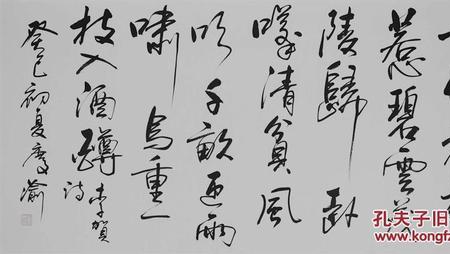 惹碧雲茂
陵歸卧
嘆清貧風
吹千畝迎雨
嘯鳥重一
枝入酒樽李賀
詩
癸巳初夏慶渝
孔夫子旧
www.kongfz.c